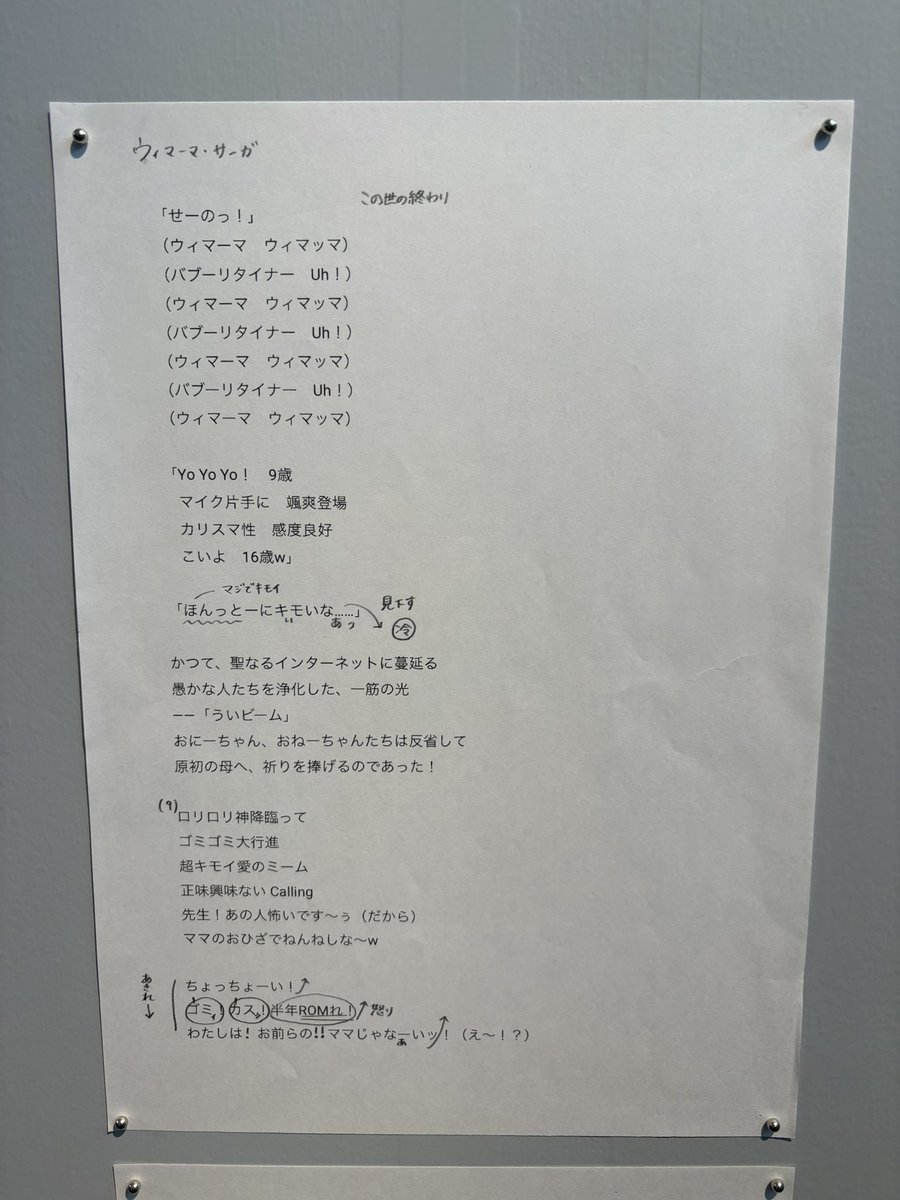 ウィマーマ・サーガ
この世の終わり
「せーのっ！」
（ウィマーマ　ウィマッマ）
（バブーリタイナー　Uh！）
（ウィマーマ　ウィマッマ）
（バブーリタイナー　Uh！）
（ウィマーマ　ウィマッマ）
（バブーリタイナー　Uh！）
（ウィマーマ　ウィマッマ）
「Yo Yo Yo！　9歳
マイク片手に　颯爽登場
カリスマ性　感度良好
こいよ　16歳w」
マジでキモイ
「ほんっとーにキモいな……」
見下す
ぃ
あっ
冷
かつて、聖なるインターネットに蔓延る
愚かな人たちを浄化した、一筋の光
――「ういビーム」
おにーちゃん、おねーちゃんたちは反省して
原初の母へ、祈りを捧げるのであった！
(9)
ロリロリ神降臨って
ゴミゴミ大行進
超キモイ愛のミーム
正味興味ない Calling
先生！あの人怖いです〜ぅ（だから）
ママのおひざでねんねしな〜w
あきれ
ちょっちょーい！
ゴミ！カス！半年ROMれ！
怒り
わたしは！お前らの!!ママじゃなーいッ！（え〜！？）
ぁ